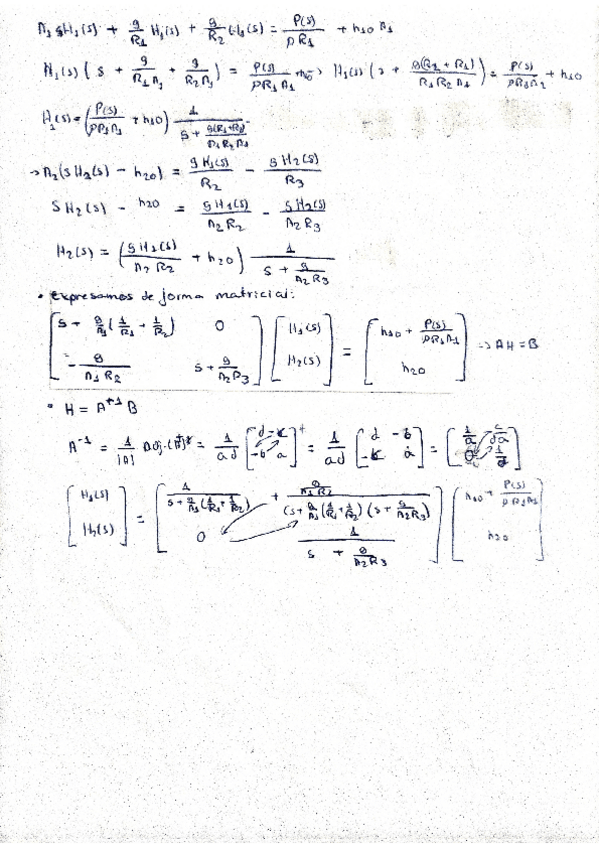 A₁ sH₁(s) + g/R₁ H₁(s) + g/R₂ H₁(s) = P(s)/ρR₁ + h₁₀ A₁
H₁(s) ( s + g/(R₁A₁) + g/(R₂A₁) ) = P(s)/(ρR₁A₁) + h₁₀ → H₁(s) ( s + g(R₂ + R₁)/(R₁R₂A₁) ) = P(s)/(ρR₁A₁) + h₁₀
H₁(s) = ( P(s)/(ρR₁A₁) + h₁₀ ) 1/(s + g(R₁+R₂)/(A₁R₂R₁))
→ A₂(sH₂(s) - h₂₀) = gH₁(s)/R₂ - gH₂(s)/R₃
sH₂(s) - h₂₀ = gH₁(s)/(A₂R₂) - gH₂(s)/(A₂R₃)
H₂(s) = ( gH₁(s)/(A₂R₂) + h₂₀ ) 1/(s + g/(A₂R₃))
• expresamos de forma matricial:
[ s + g/A₁(1/R₁ + 1/R₂)  0 ] [ H₁(s) ] = [ h₁₀ + P(s)/(ρR₁A₁) ] → AH = B
[ -g/(A₁R₂)  s + g/(A₂R₃) ] [ H₂(s) ] [ h₂₀ ]
• H = A⁻¹ B
A⁻¹ = 1/|A| Adj = 1/ad [ d -c ; -b a ]ᵗ = 1/ad [ d -b ; a ] =
[ H₁(s) ] = [ 1/(s + g/A₁(1/R₁ + 1/R₂))  + g/(A₁R₂)/((s + g/A₁(1/R₁ + 1/R₂))(s + g/(A₂R₃))) ] [ h₁₀ + P(s)/(ρR₁A₁) ]
[ H₂(s) ] [ 0  1/(s + g/(A₂R₃)) ] [ h₂₀ ]